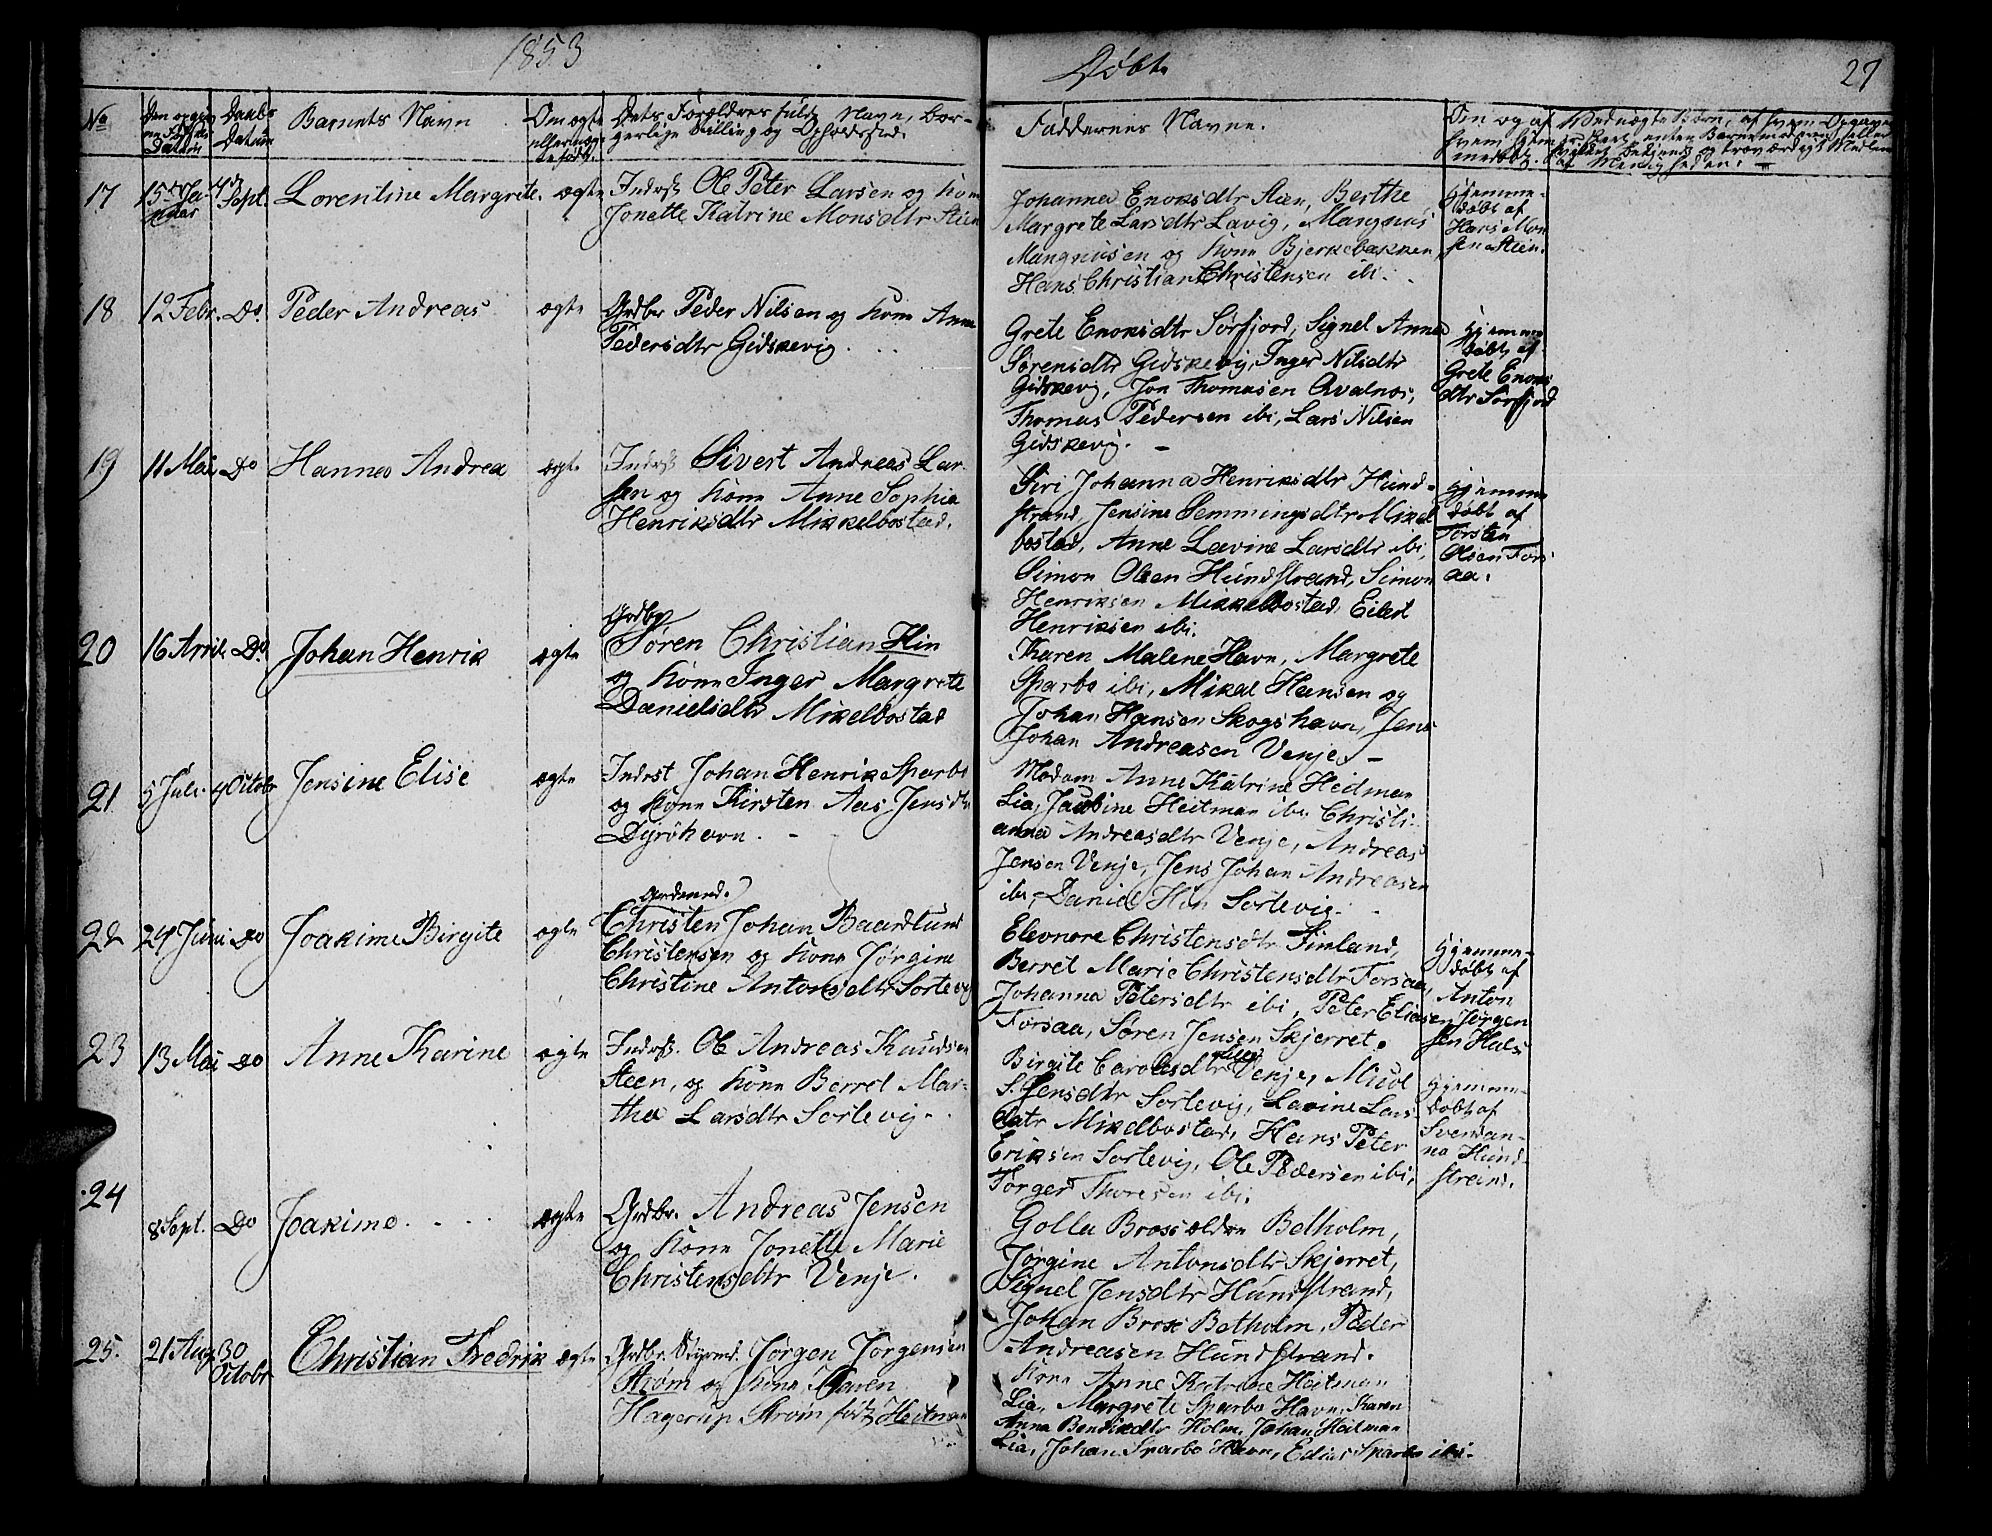 1853
Døbte
27
No
Datum
Daabs
Datum
Barnets Navn
Om ægte
eller uæg-
te født.
Dets Forældres fulde Navn, bor-
gerlige Stilling og Opholdsted.
Faddernes Navne.
17
15de Ja-
nuar
4de
Sept.
Lorentine Margrete.
ægte
Indrst Ole Peter Larsen og Kone
Jonette Katrine Monsdtr Steen
Johanna Enoksdtr Steen, Berthe
Margrete Larsdtr Lavig, Mangnus
Mangnusen og Kone Bjerkebakken,
Hans Christian Christensen ibi.
Hjemme-
døbt af
Hans Mon
sen Steen.
18
12 Febr.
Do.
Peder Andreas
ægte
Grdbr Peder Nilsen og Kone Anne
Pedersdtr Gidskevig.
Grete Enoksdtr Sörfjord, Signel Anna
Sørensdtr Gidskevig, Inger Nilsdtr
Gidskevig, Jon Thomasen Qvalnes,
Thomas Pedersen ibi, Lars Nilsen
Gidskevig.
Hjemme
døbt af
Grete Enoks
dtr Sörfjord
19
11 Mai
Do
Hannes Andrea
ægte
Indrst Sivert Andreas Lar-
sen og Kone Anne Sophie
Henriksdtr Mikkelbostad.
Siri Johanna Henriksdtr Hund-
strand, Jensine Hemmingsdtr Mikel
bostad, Anne Lavine Larsdtr ibi,
Simon Olsen Hundstrand, Simon
Henriksen Mikkelbostad, Eilert
Henriksen ibi.
Hjemme
døbt af
Torsten
Olsen Fors
aa.
20
16 April
Do.
Johan Henrik
ægte
Grdbr
Søren Christian Hin
og Kone Inger Margrete
Danielsdtr Mikelbostad
Karen Malene Havn, Margrete
Sparbo ibi, Mikal Hansen og
Johan Hansen Skogshavn, Jens
Johan Andreasen Venje.
21
5 Juli.
4 Octobr
Jensine Elise
ægte
Indrst Johan Henrik Sparbo
og Kone Kirsten Aas Jensdtr
Dyröhavn.
Madam Anne Katrine Heitman
Lia, Jacobine Heitman ibi, Christi-
anna Andreasdtr Venje, Andreas
Jensen Venje, Jens Johan Andreasen
ibi, Daniel Hin Sortevig.
22
24 Juni
Do
Joakime Birgite
ægte
Christen Johan Baardlund
Christensen og Kone Jørgine
Christine Antonsdtr Sortevig
Eleonore Christensdtr Finland,
Berret Marie Christensdtr Forsaa,
Johanna Petersdtr ibi, Peter Eliasen
Forsaa, Søren Jensen Skjerret.
Hjemme-
døbt af
Anton
Jørgen
sen Hals
23
13 Mai
Do
Anne Karine
ægte
Indrst. Ole Andreas Knudsen
Steen, og Kone Berret Mar-
tha Larsdtr Sortevig.
Birgite Carolusdtr Venje,
S. Jensdtr Sortevig, Lavine Lars-
datr Mikelbostad, Hans Peter
Eriksen Sortevig, Ole Pedersen ibi,
Torger Thoresen ibi.
Hjemme-
døbt af
Svendan-
na Hund-
strand.
24
8 Sept.
Do
Joakime
ægte
Grdbr. Andreas Jensen
og Kone Jonette Marie
Christensdtr Venje.
Golla Brox Betholm,
Jørgine Antonsdtr Skjerret,
Signel Jensdtr Hundstrand,
Johan Brox Betholm, Peder
Andreasen Hundstrand.
25.
21 Aug
30
Octobr
Christian Fredrik
ægte
Grdbr. Jørgen Jørgensen
Strøm og Kone Maren
Hagerup Strøm født Heitman
Kone Anne Katrine Heitman
Lia, Margrete Sparbo Havn, Karen
Anna Bendiksdtr Holm, Johan Heitman
Lia, Johan Sparbo Havn, Edias Sparbo ibi.